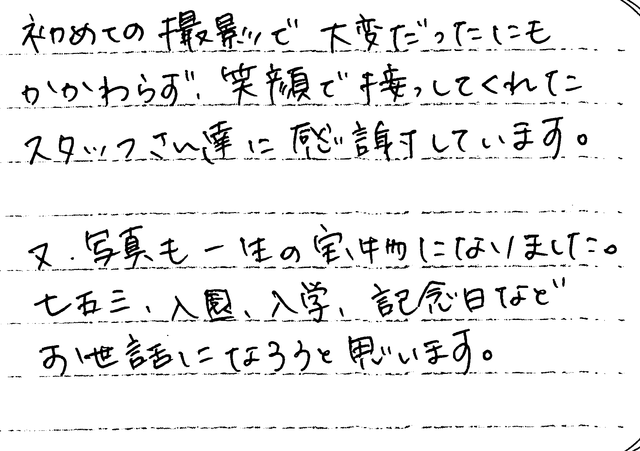 初めての撮影で大変だったにも
かかわらず、笑顔で接してくれた
スタッフさん達に感謝しています。
又、写真も一生の宝物になりました。
七五三、入園、入学、記念日など
お世話になろうと思います。